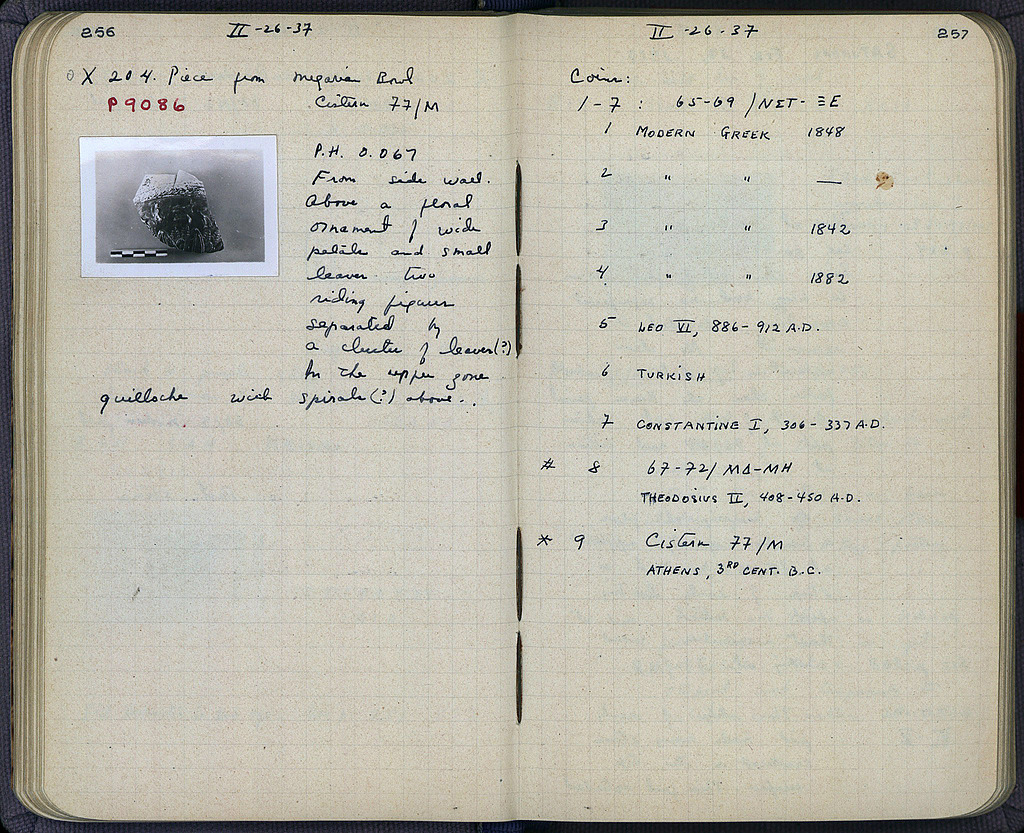 256
II-26-37
O X 204. Piece from Megarian Bowl
P 9086
Cistern 77/M
P.H. 0.067
From side wall.
Above a floral
ornament of wide
petals and small
leaves two
riding figures
separated by
a cluster of leaves(?)
In the upper zone
guilloche with spirals(?) above.
II-26-37
257
Coins:
1-7 : 65-69/ΝΣΤ-ΞΕ
1 MODERN GREEK 1848
2 " " —
3 " " 1842
4 " " 1882
5 LEO VI, 886-912 A.D.
6 TURKISH
7 CONSTANTINE I, 306-337 A.D.
# 8 67-72/ΜΔ-ΜΗ
THEODOSIUS II, 408-450 A.D.
* 9 Cistern 77/M
ATHENS, 3RD CENT. B.C.